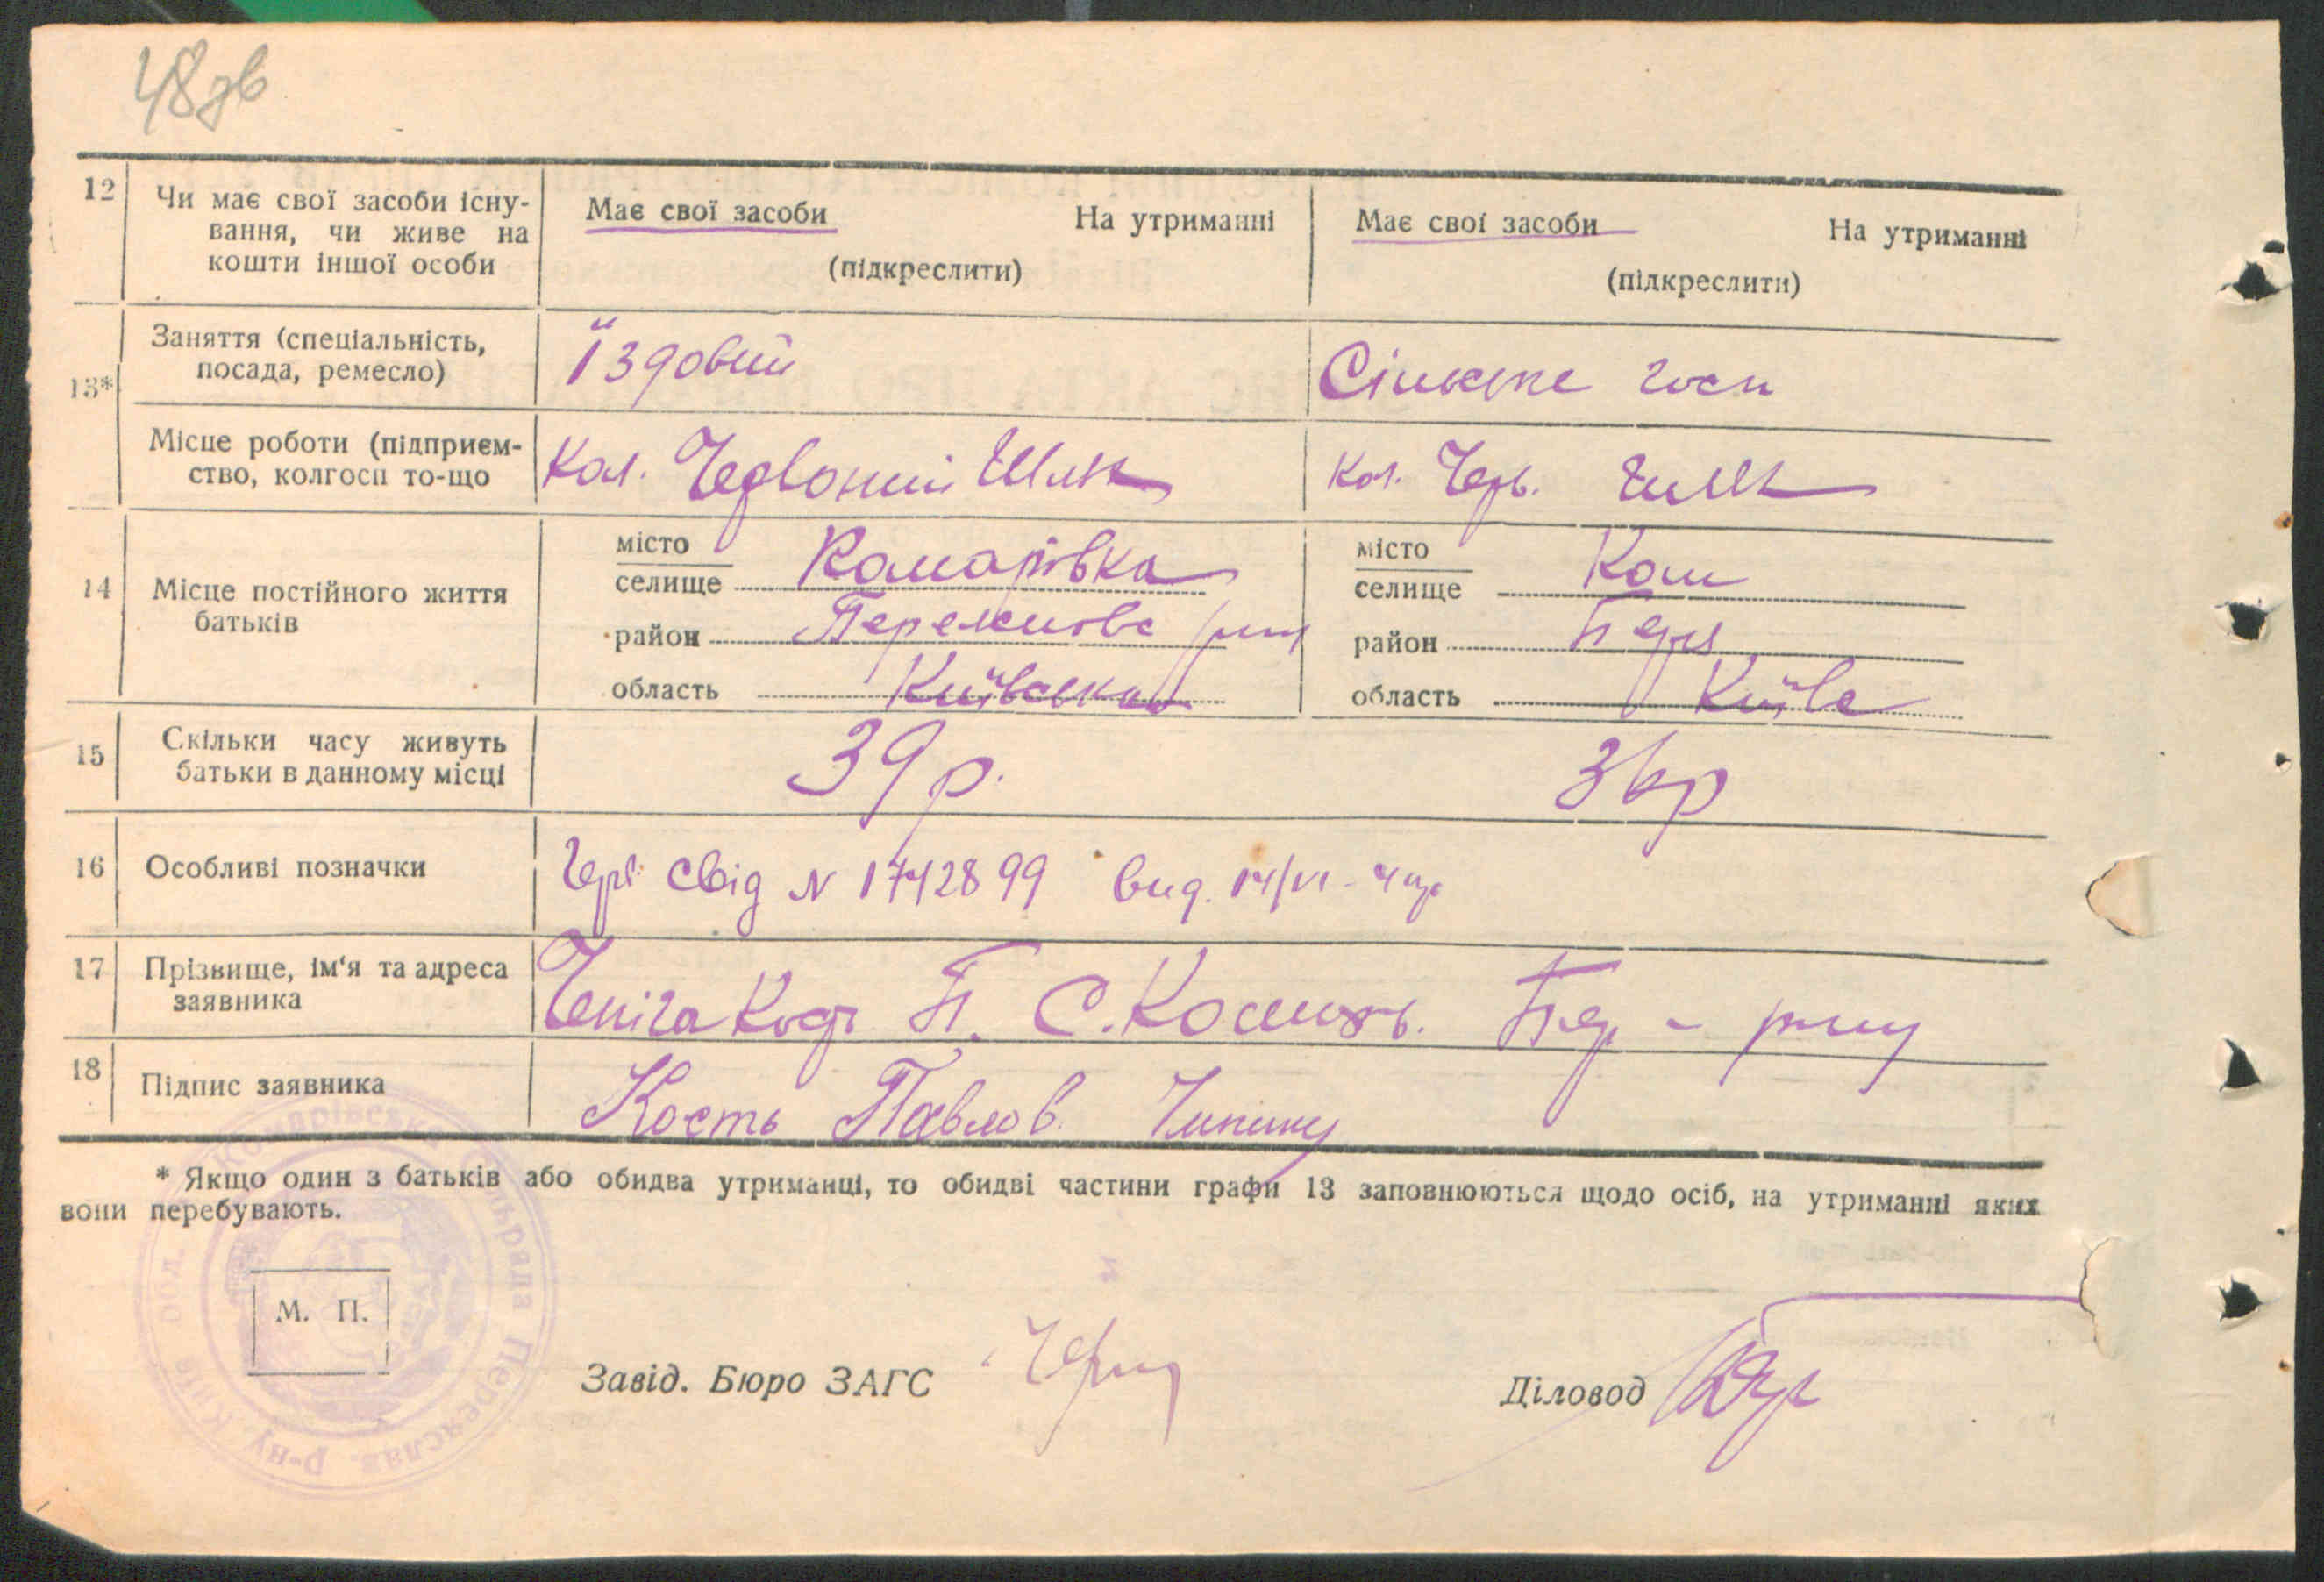 48зв
12 Чи має свої засоби існу-
вання, чи живе на
кошти іншої особи
Має свої засоби На утриманні
(підкреслити)
Має свої засоби На утриманні
(підкреслити)
13*
Заняття (спеціальність,
посада, ремесло)
Їздовий
Сільске госп
Місце роботи (підприєм-
ство, колгосп то-що
Кол. Червоний Шлях
Кол. Черв. Шлях
14 Місце постійного життя
батьків
місто
селище Комарівка
район
область Київська
місто
селище Ком
район Пер
область Київс
15 Скільки часу живуть
батьки в данному місці
39 р.
36 р
16 Особливі позначки
свід N 1742899 вид.
17 Прізвище, ім'я та адреса
заявника
Чепіга П. С. Пер -
18 Підпис заявника
Кость Павлов.
* Якщо один з батьків або обидва утриманці, то обидві частини графи 13 заповнюються щодо осіб, на утриманні яких
вони перебувають.
М. П.
Завід. Бюро ЗАГС
Діловод
Сільрада Переяслав. р-ну, Київ обл.